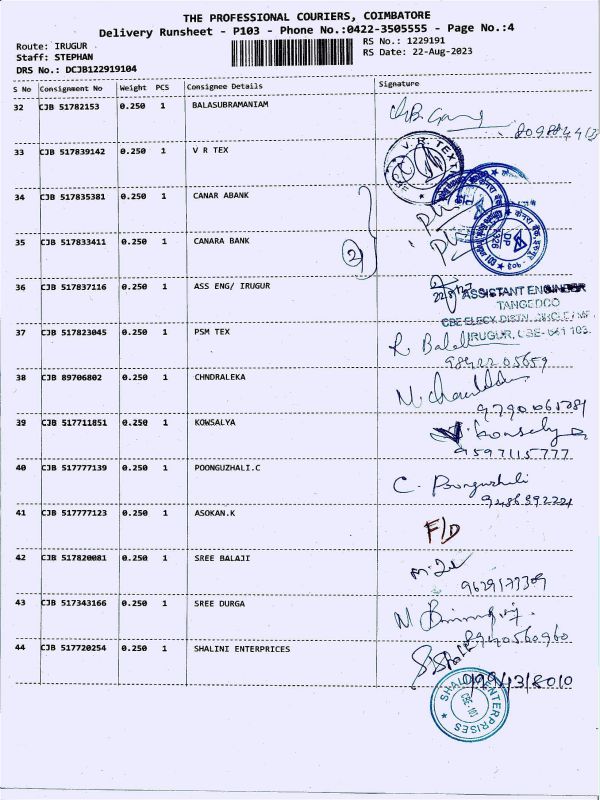 THE PROFESSIONAL COURIERS, COIMBATORE
Delivery Runsheet - P103 - Phone No.:0422-3505555 - Page No.:4
Route: IRUGUR
Staff: STEPHAN
DRS No.: DCJB122919104
RS No.: 1229191
RS Date: 22-Aug-2023
S No Consignment No Weight PCS Consignee Details Signature
32 CJB 51782153 0.250 1 BALASUBRAMANIAM
33 CJB 517839142 0.250 1 V R TEX
V.R. TEXT
34 CJB 517835381 0.250 1 CANAR ABANK
35 CJB 517833411 0.250 1 CANARA BANK
2
36 CJB 517837116 0.250 1 ASS ENG/ IRUGUR
ASSISTANT ENGINEER
TANGEDCO
IRUGUR, CBE- 641 103.
37 CJB 517823045 0.250 1 PSM TEX
9842205659
38 CJB 89706802 0.250 1 CHNDRALEKA
39 CJB 517711851 0.250 1 KOWSALYA
9597115777
40 CJB 517777139 0.250 1 POONGUZHALI.C
C. Poonguzhali
9486392221
41 CJB 517777123 0.250 1 ASOKAN.K
F/D
42 CJB 517820081 0.250 1 SREE BALAJI
43 CJB 517343166 0.250 1 SREE DURGA
44 CJB 517720254 0.250 1 SHALINI ENTERPRICES
SHALINI ENTERPRISES
CBE-103